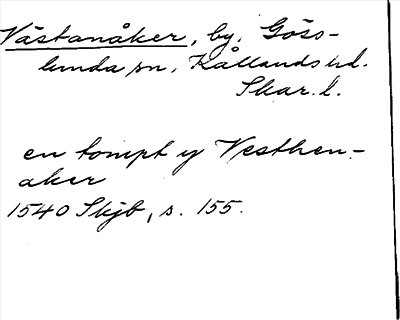 Västanåker, by, Göss-
lunda sn, Kållands hd.
Skar. l.
en tompt y Vesthen-
aker
1540 Skjb, s. 155.